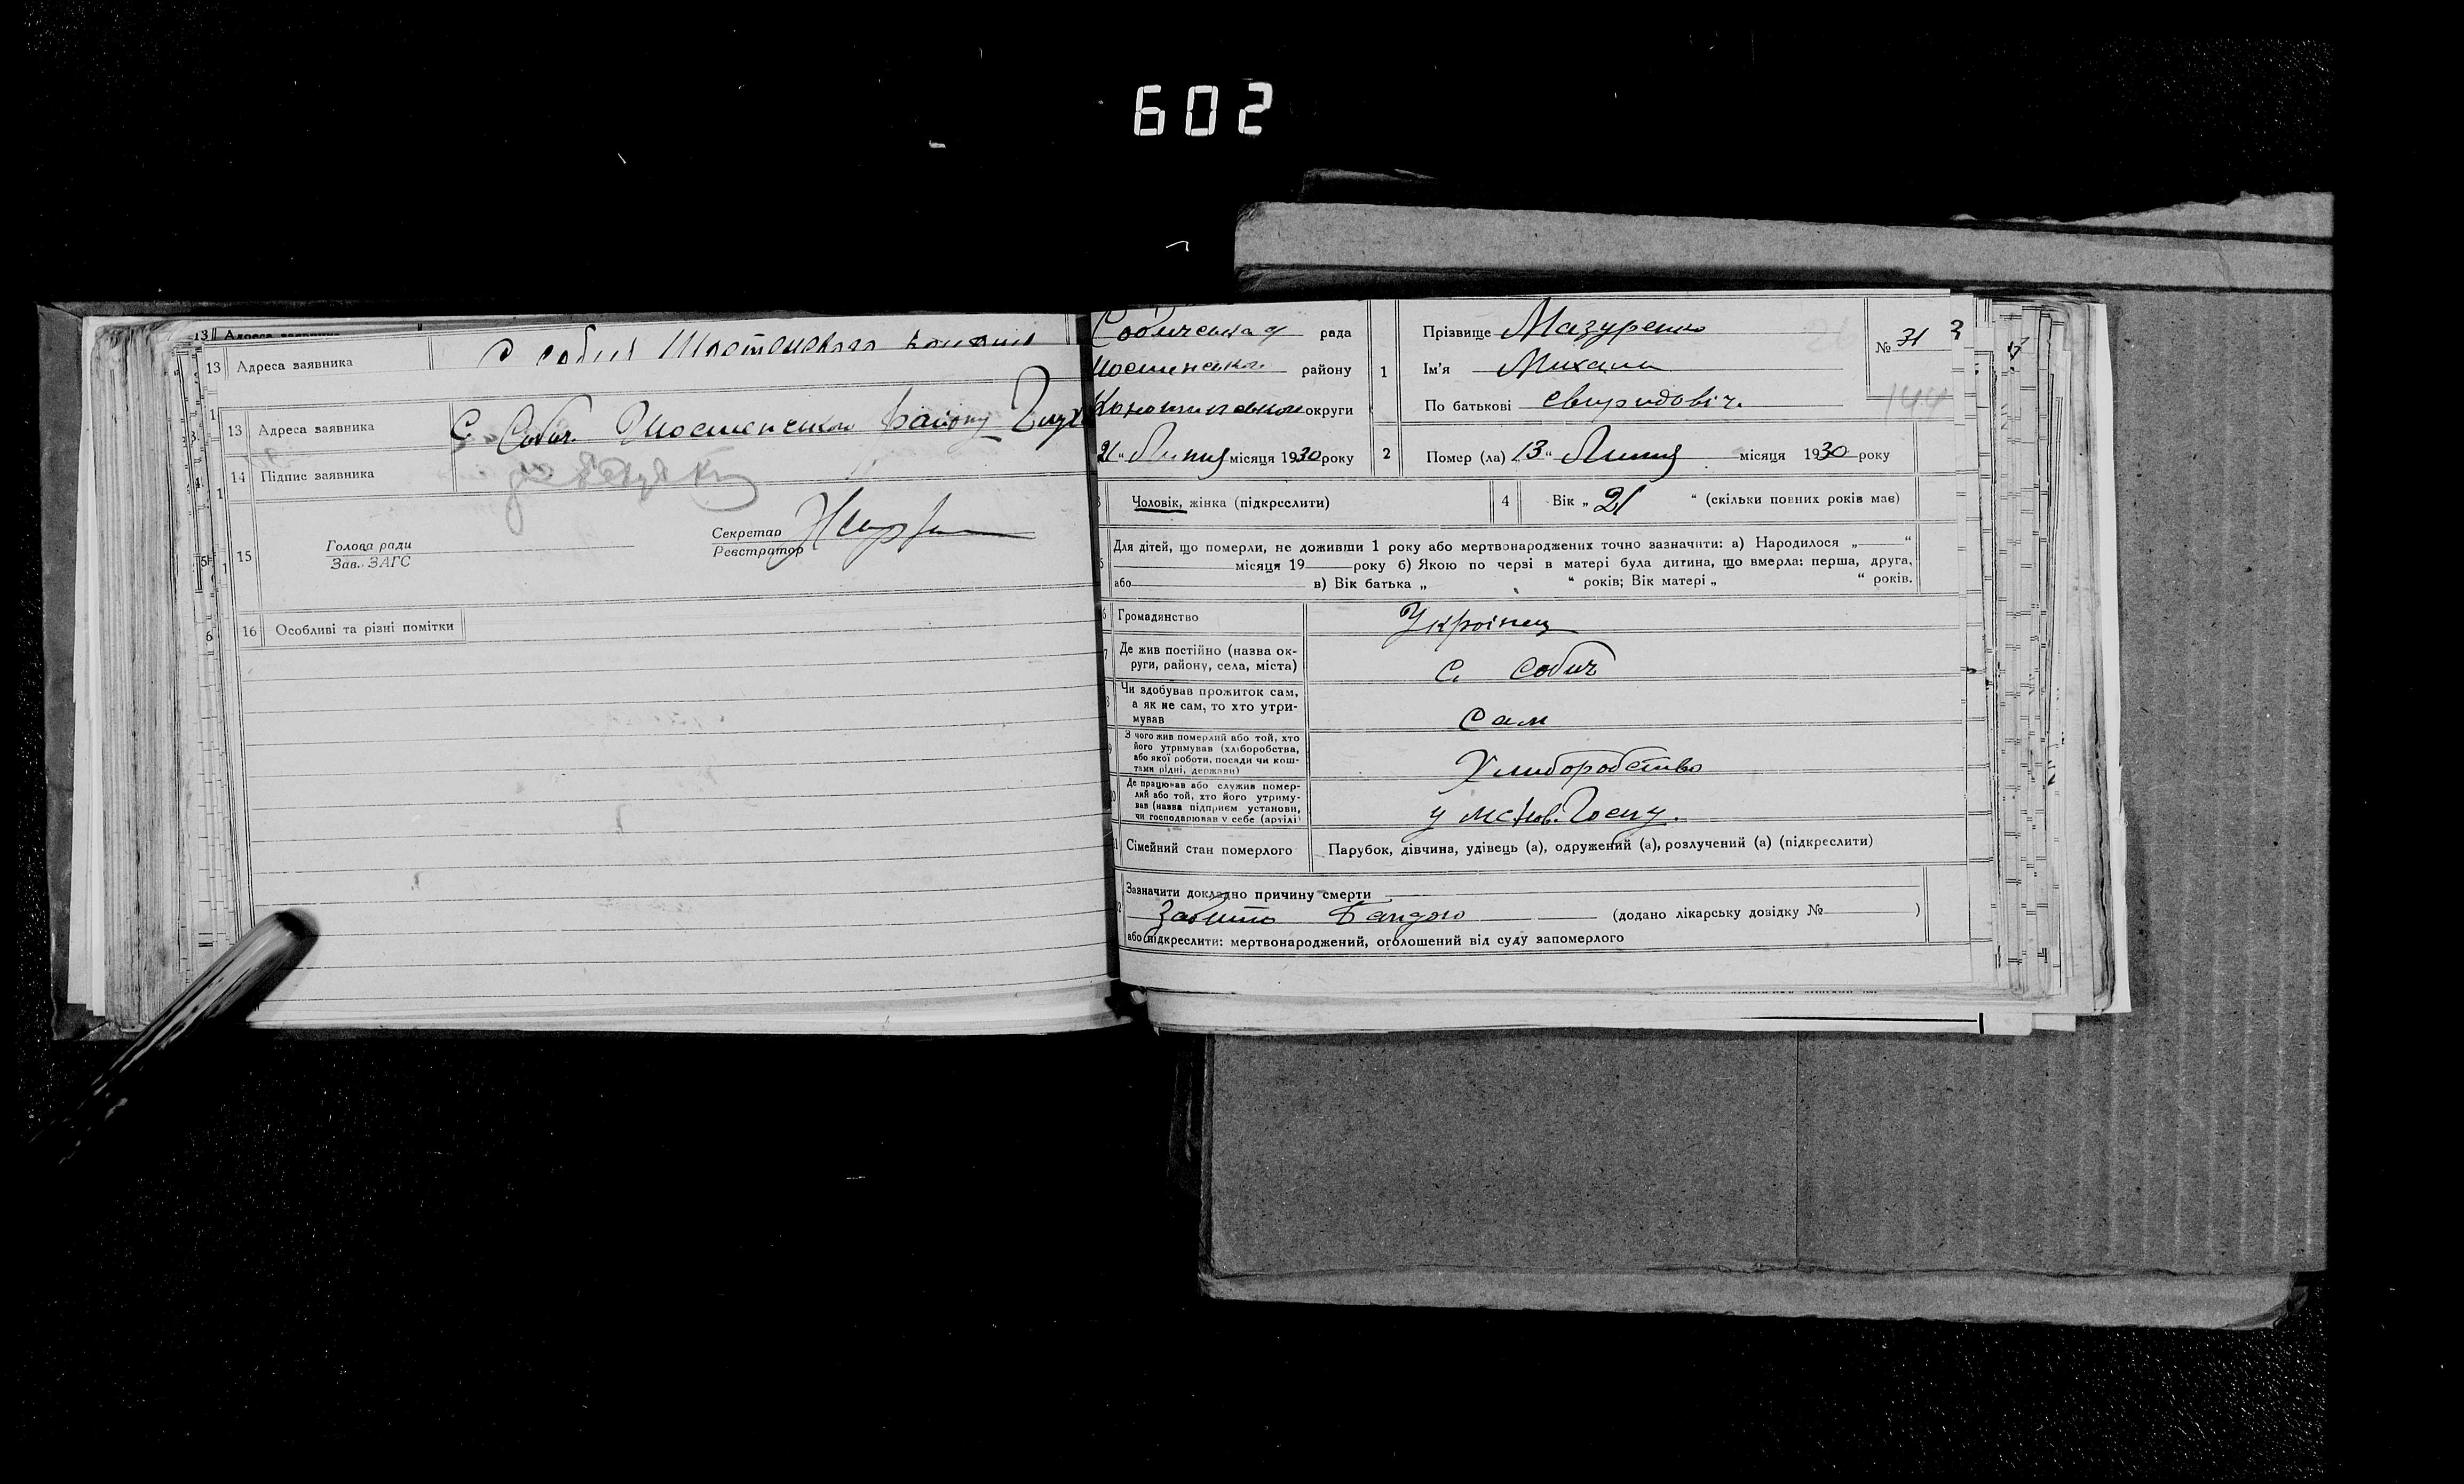 602
13 Адреса заявника
13 Адреса заявника С. Собич Шостенського району
14 Підпис заявника
15 Голова ради
Зав. ЗАГС
Секретар
Реєстратор
16 Особливі та різні помітки
Собичська рада
району
округи
21 „ Липня місяця 1930 року
1 Прізвище Мазуренко
Ім'я Михаил
По батькові Свиридовіч.
№ 31
144
2 Помер (ла) „13“ Липня місяця 1930 року
Чоловік, жінка (підкреслити)
4 Вік „ 21 “ (скільки повних років має)
Для дітей, що померли, не доживши 1 року або мертвонароджених точно зазначити: а) Народилося „ “
місяця 19 року б) Якою по черзі в матері була дитина, що вмерла: перша, друга,
або в) Вік батька „ “ років; Вік матері „ “ років.
6 Громадянство Українец
7 Де жив постійно (назва ок-
руги, району, села, міста) с. Собич
8 Чи здобував прожиток сам,
а як не сам, то хто утри-
мував Сам
9 З чого жив померлий або той, хто
його утримував (хліборобства,
або якої роботи, посади чи кош-
тами рідні, держави) Хлиборобство
10 Де працював або служив помер-
лий або той, хто його утриму-
вав (назва підприєм установи,
чи господарював у себе (артілі)
11 Сімейний стан померлого Парубок, дівчина, удівець (а), одружений (а), розлучений (а) (підкреслити)
Зазначити докладно причину смерти
12 Забито Бандою (додано лікарську довідку № )
або підкреслити: мертвонароджений, оголошений від суду запомерлого